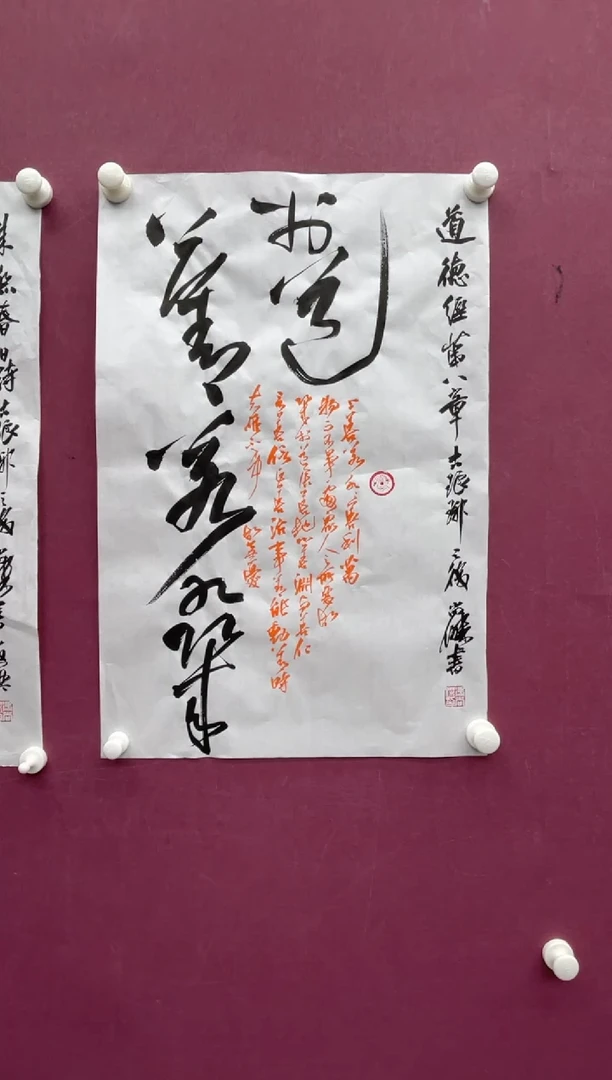 道德經第八章 古琅琊
書
於道
善若水
上善若水水善利萬
物而不爭處眾人之所惡故
幾於道居善地心善淵與善仁
言善信正善治事善能動善時
夫唯不爭
故無
朱熹春日詩古琅琊